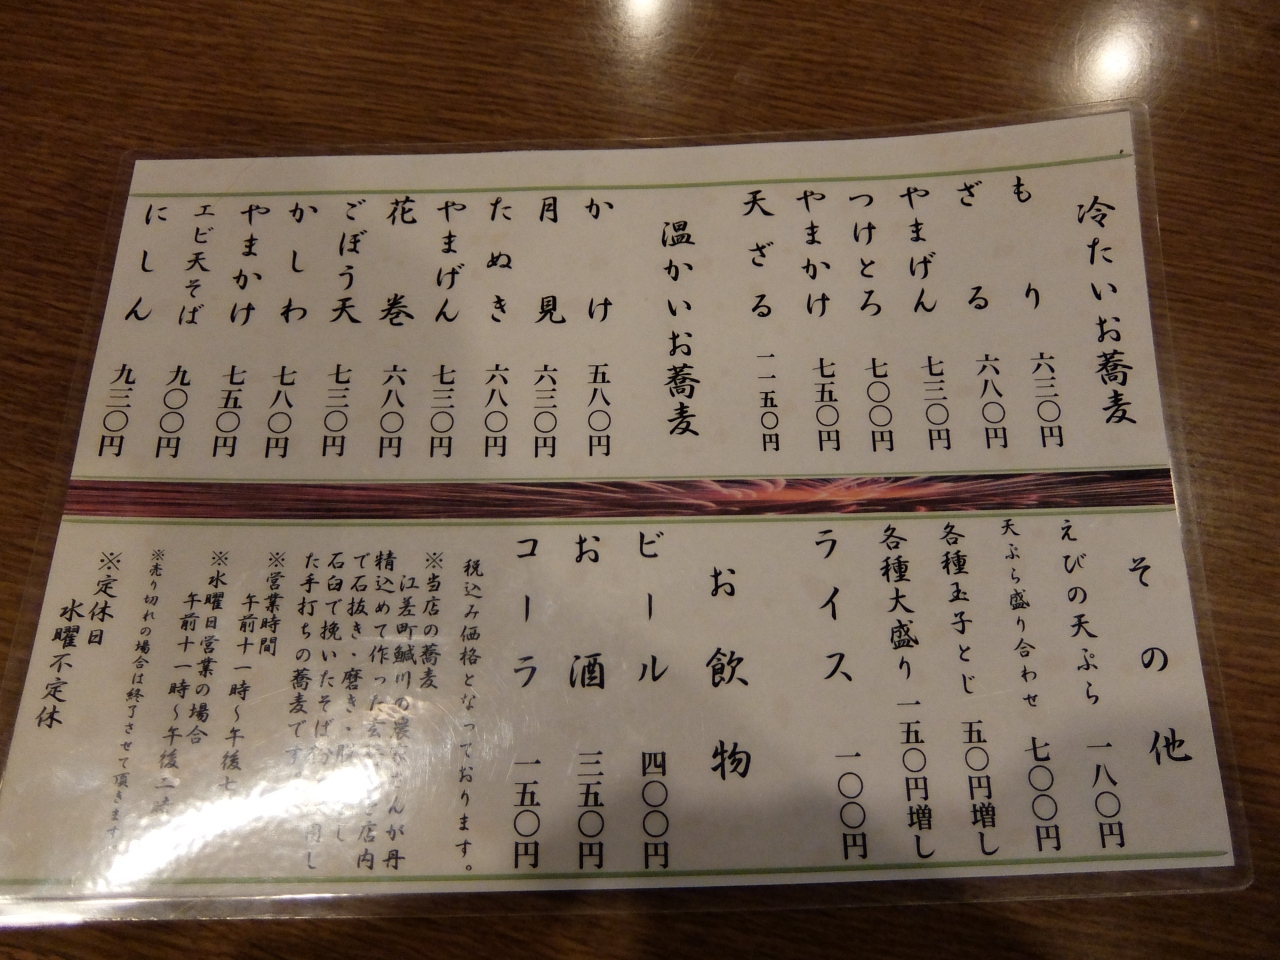 冷たいお蕎麦
もり 六三〇円
ざる 六八〇円
やまげん 七三〇円
つけとろ 七〇〇円
やまかけ 七五〇円
天ざる 一一五〇円
温かいお蕎麦
かけ 五八〇円
月見 六三〇円
たぬき 六八〇円
やまげん 七三〇円
花巻 六八〇円
ごぼう天 七三〇円
かしわ 七八〇円
やまかけ 七五〇円
エビ天そば 九〇〇円
にしん 九三〇円
その他
えびの天ぷら 一八〇円
天ぷら盛り合わせ 七〇〇円
各種玉子とじ 五〇円増し
各種大盛り 一五〇円増し
ライス 一〇〇円
お飲物
ビール 四〇〇円
お酒 三五〇円
コーラ 一五〇円
税込み価格となっております。
※当店の蕎麦
江差町鰔川の農家さんが丹
精込めて作った玄 店内
で石抜き・磨き・ し
石臼で挽いたそば し
た手打ちの蕎麦です
※営業時間
午前十一時～午後七
※水曜日営業の場合
午前十一時～午後二時
※売り切れの場合は終了させて頂きます
※定休日
水曜不定休